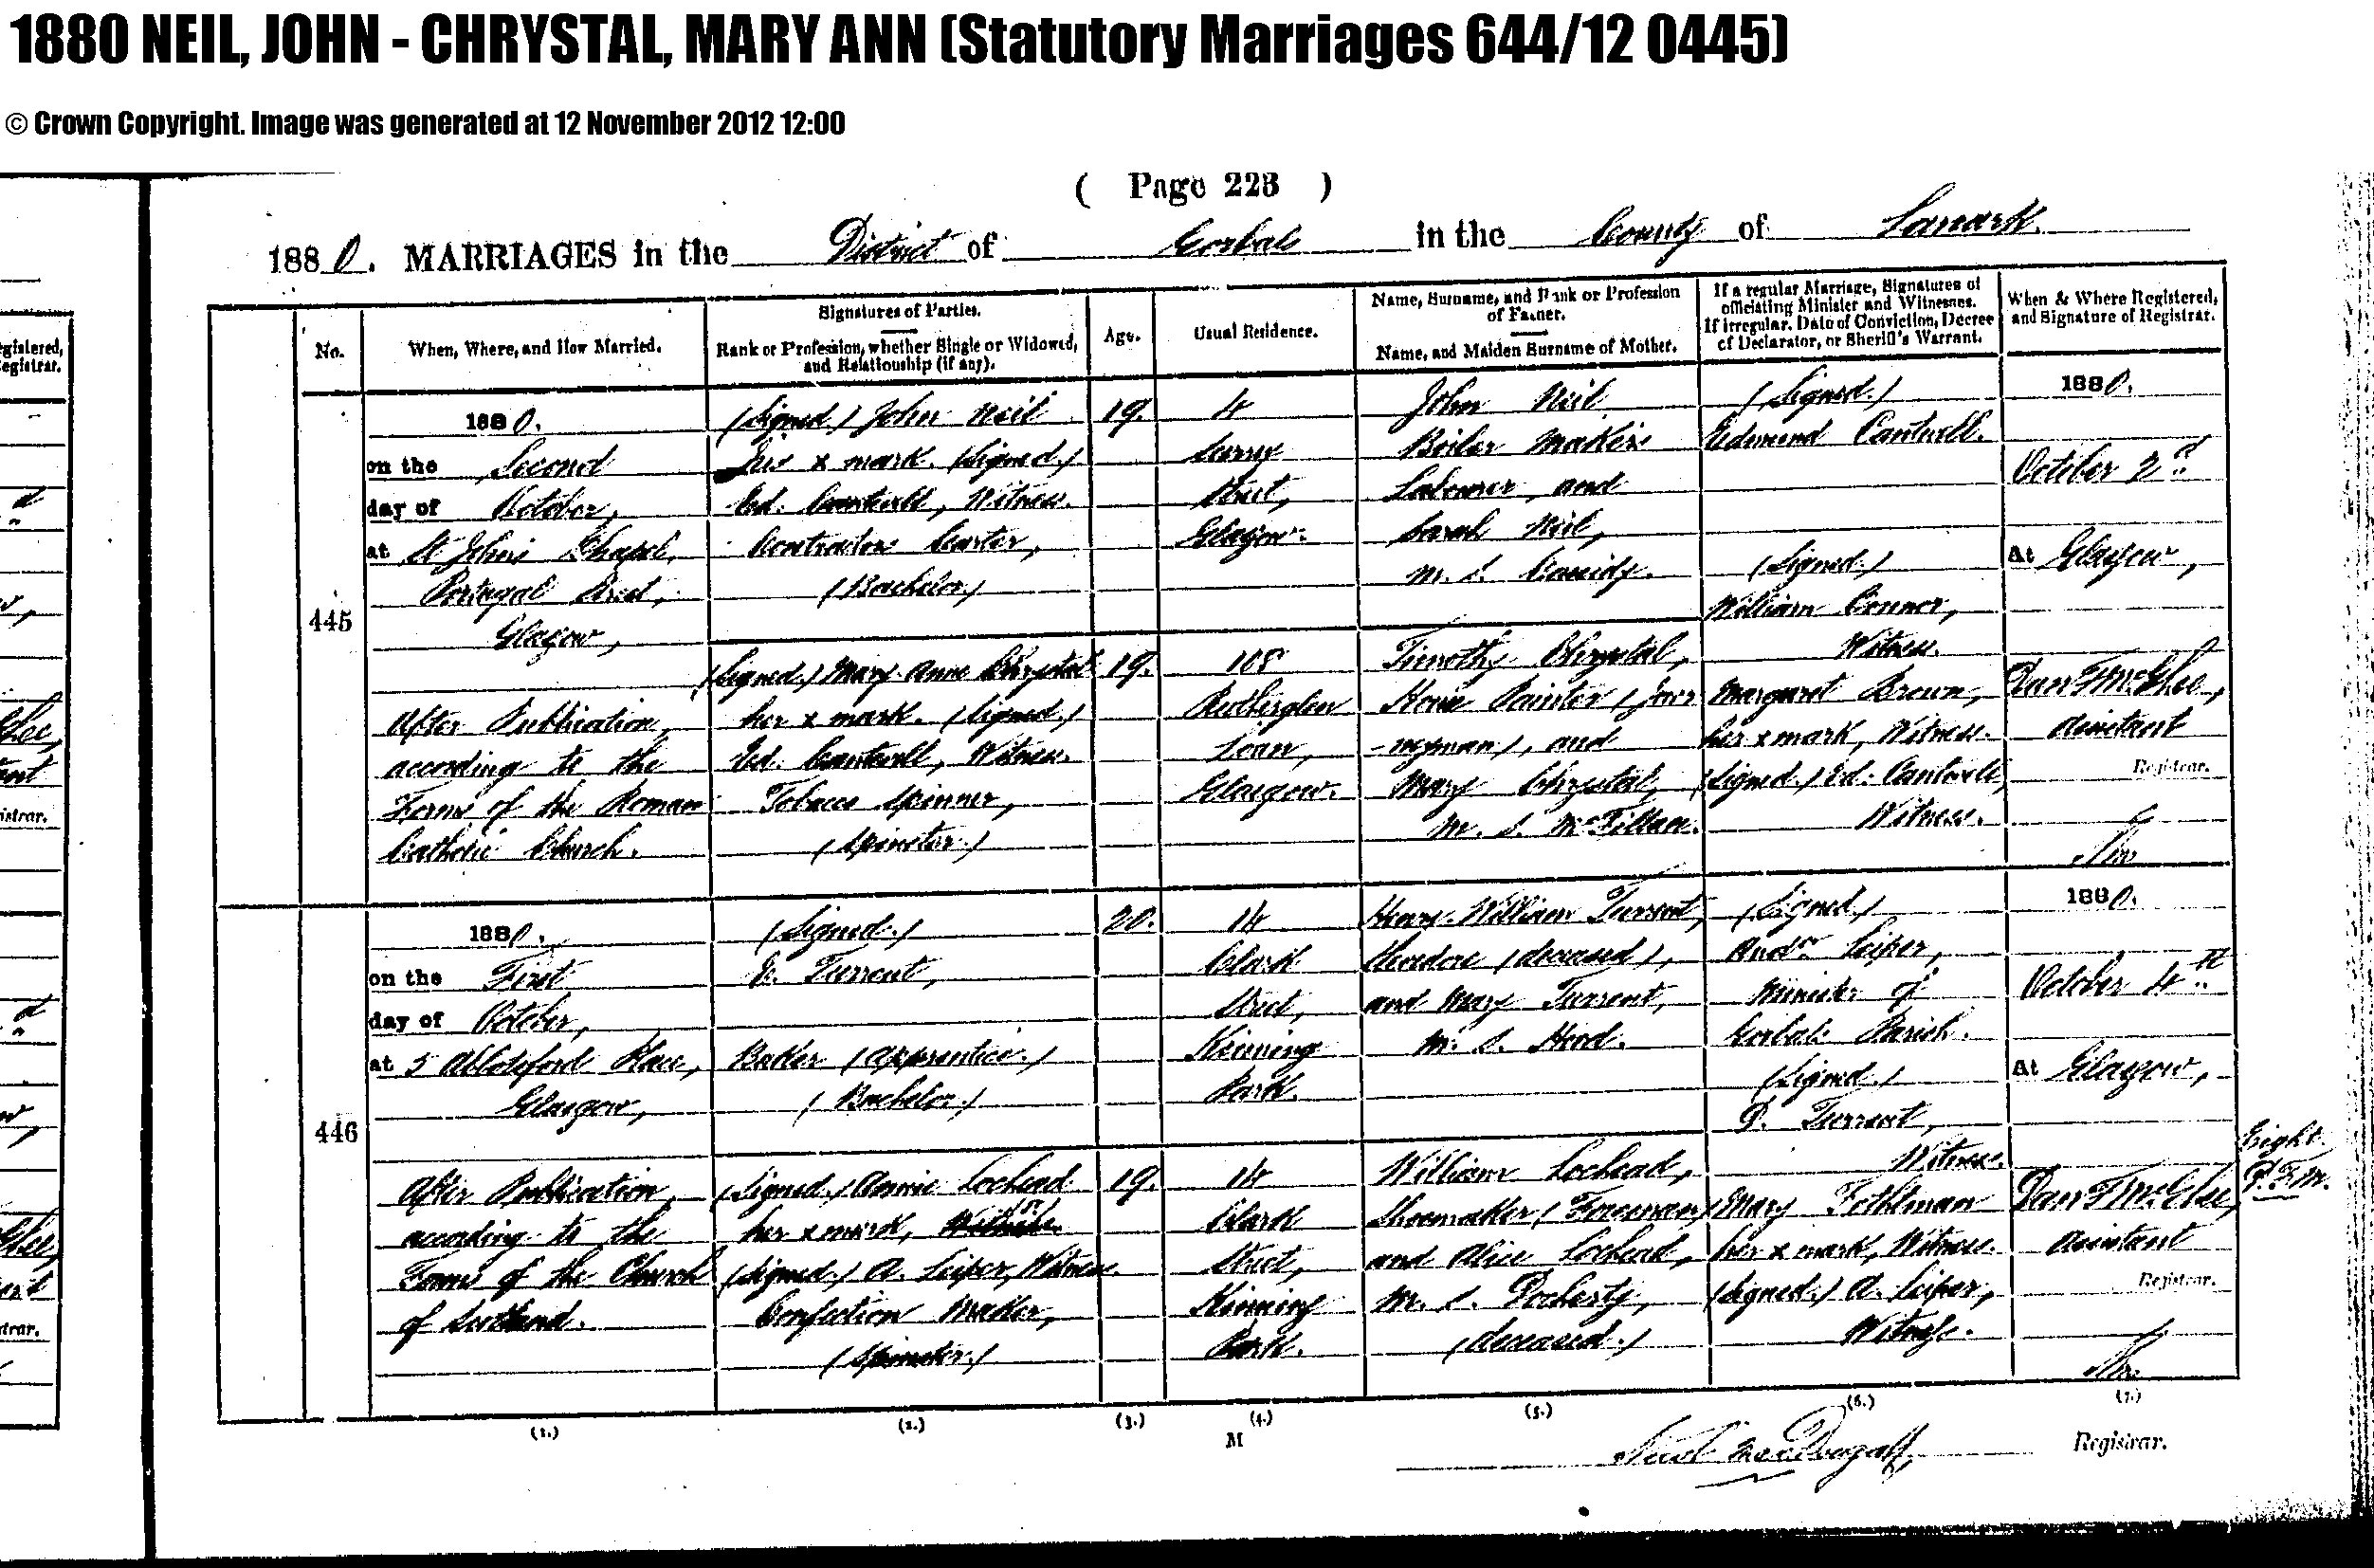 1880 NEIL, JOHN - CHRYSTAL, MARY ANN (Statutory Marriages 644/12 0445)
© Crown Copyright. Image was generated at 12 November 2012 12:00
( Page 223 )
1880. MARRIAGES in the District of Gorbals in the County of Lanark.
No.
When, Where, and How Married.
Signatures of Parties.
Rank or Profession, whether Single or Widowed,
and Relationship (if any).
Age.
Usual Residence.
Name, Surname, and Rank or Profession
of Father.
Name, and Maiden Surname of Mother.
If a regular Marriage, Signatures of
officiating Minister and Witnesses.
If irregular, Date of Conviction, Decree
of Declarator, or Sheriff's Warrant.
When & Where Registered,
and Signature of Registrar.
445
1880.
on the Second
day of October,
at St John's Chapel,
Portugal Street,
Glasgow,
After Publication,
according to the
Forms of the Roman
Catholic Church.
(Signed.) John Neil
his x mark. (Signed.)
Ed. Cantwell, Witness.
Contractor's Carter,
(Bachelor.)
19.
4
Surrey
Street,
Glasgow.
John Neil
Boiler Maker's
Labourer, and
Sarah Neil,
m. s. Cassidy.
(Signed.) Mary Anne Chrystal
her x mark. (Signed.)
Ed. Cantwell, Witness.
Tobacco Spinner,
(Spinster.)
19.
108
Rutherglen
Loan,
Glasgow.
Timothy Chrystal,
House Painter (Jour
-neyman), and
Mary Chrystal,
m. s. McFillan.
(Signed.)
Edmund Cantwell.
(Signed.)
William Connor,
Witness.
Margaret Brown,
her x mark, Witness.
(Signed.) Ed. Cantwell,
Witness.
1880.
October 2d.
At Glasgow,
Dan F McGhee,
Assistant
Registrar.
446
1880.
on the First
day of October,
at 5 Abbotsford Place,
Glasgow,
After Publication,
according to the
Forms of the Church
of Scotland.
(Signed.)
E. Turrent,
Baker (Apprentice.)
(Bachelor.)
20.
14
Clark
Street,
Kinning
Park.
Henry William Turrent,
(deceased),
and Mary Turrent,
m. s. Hood.
(Signed.) Annie Lochead
her x mark,
(Signed.) A. Leiper, Witness.
Confection Maker,
(Spinster.)
19.
14
Clark
Street,
Kinning
Park.
William Lochead,
Shoemaker (Foreman)
and Alice Lochead,
m. s. Docherty,
(deceased.)
(Signed)
Andw. Leiper,
Minister of
Gorbals Parish.
(Signed.)
P. Turrent,
Witness.
Mary
her x mark, Witness.
(Signed.) A. Leiper,
Witness.
1880.
October 4th.
At Glasgow,
Dan F McGhee,
Assistant
Registrar.
Eight.
D.F.M.
(1.) (2.) (3.) (4.) (5.) (6.) (7.)
M
Registrar.